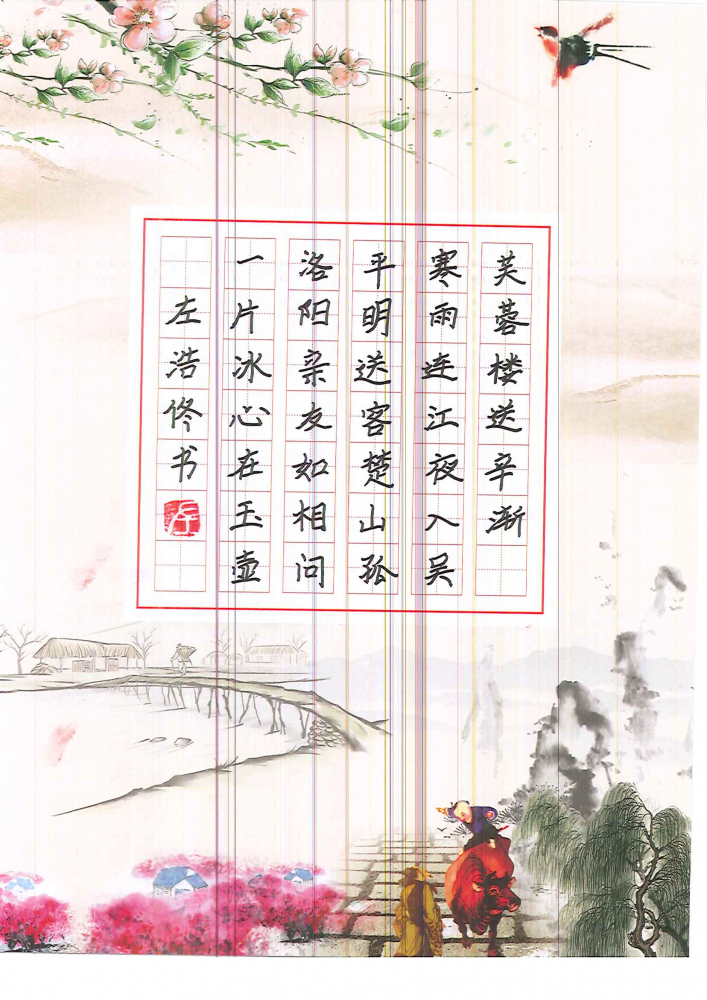 芙蓉楼送辛渐
寒雨连江夜入吴
平明送客楚山孤
洛阳亲友如相问
一片冰心在玉壶
左浩佟书
左